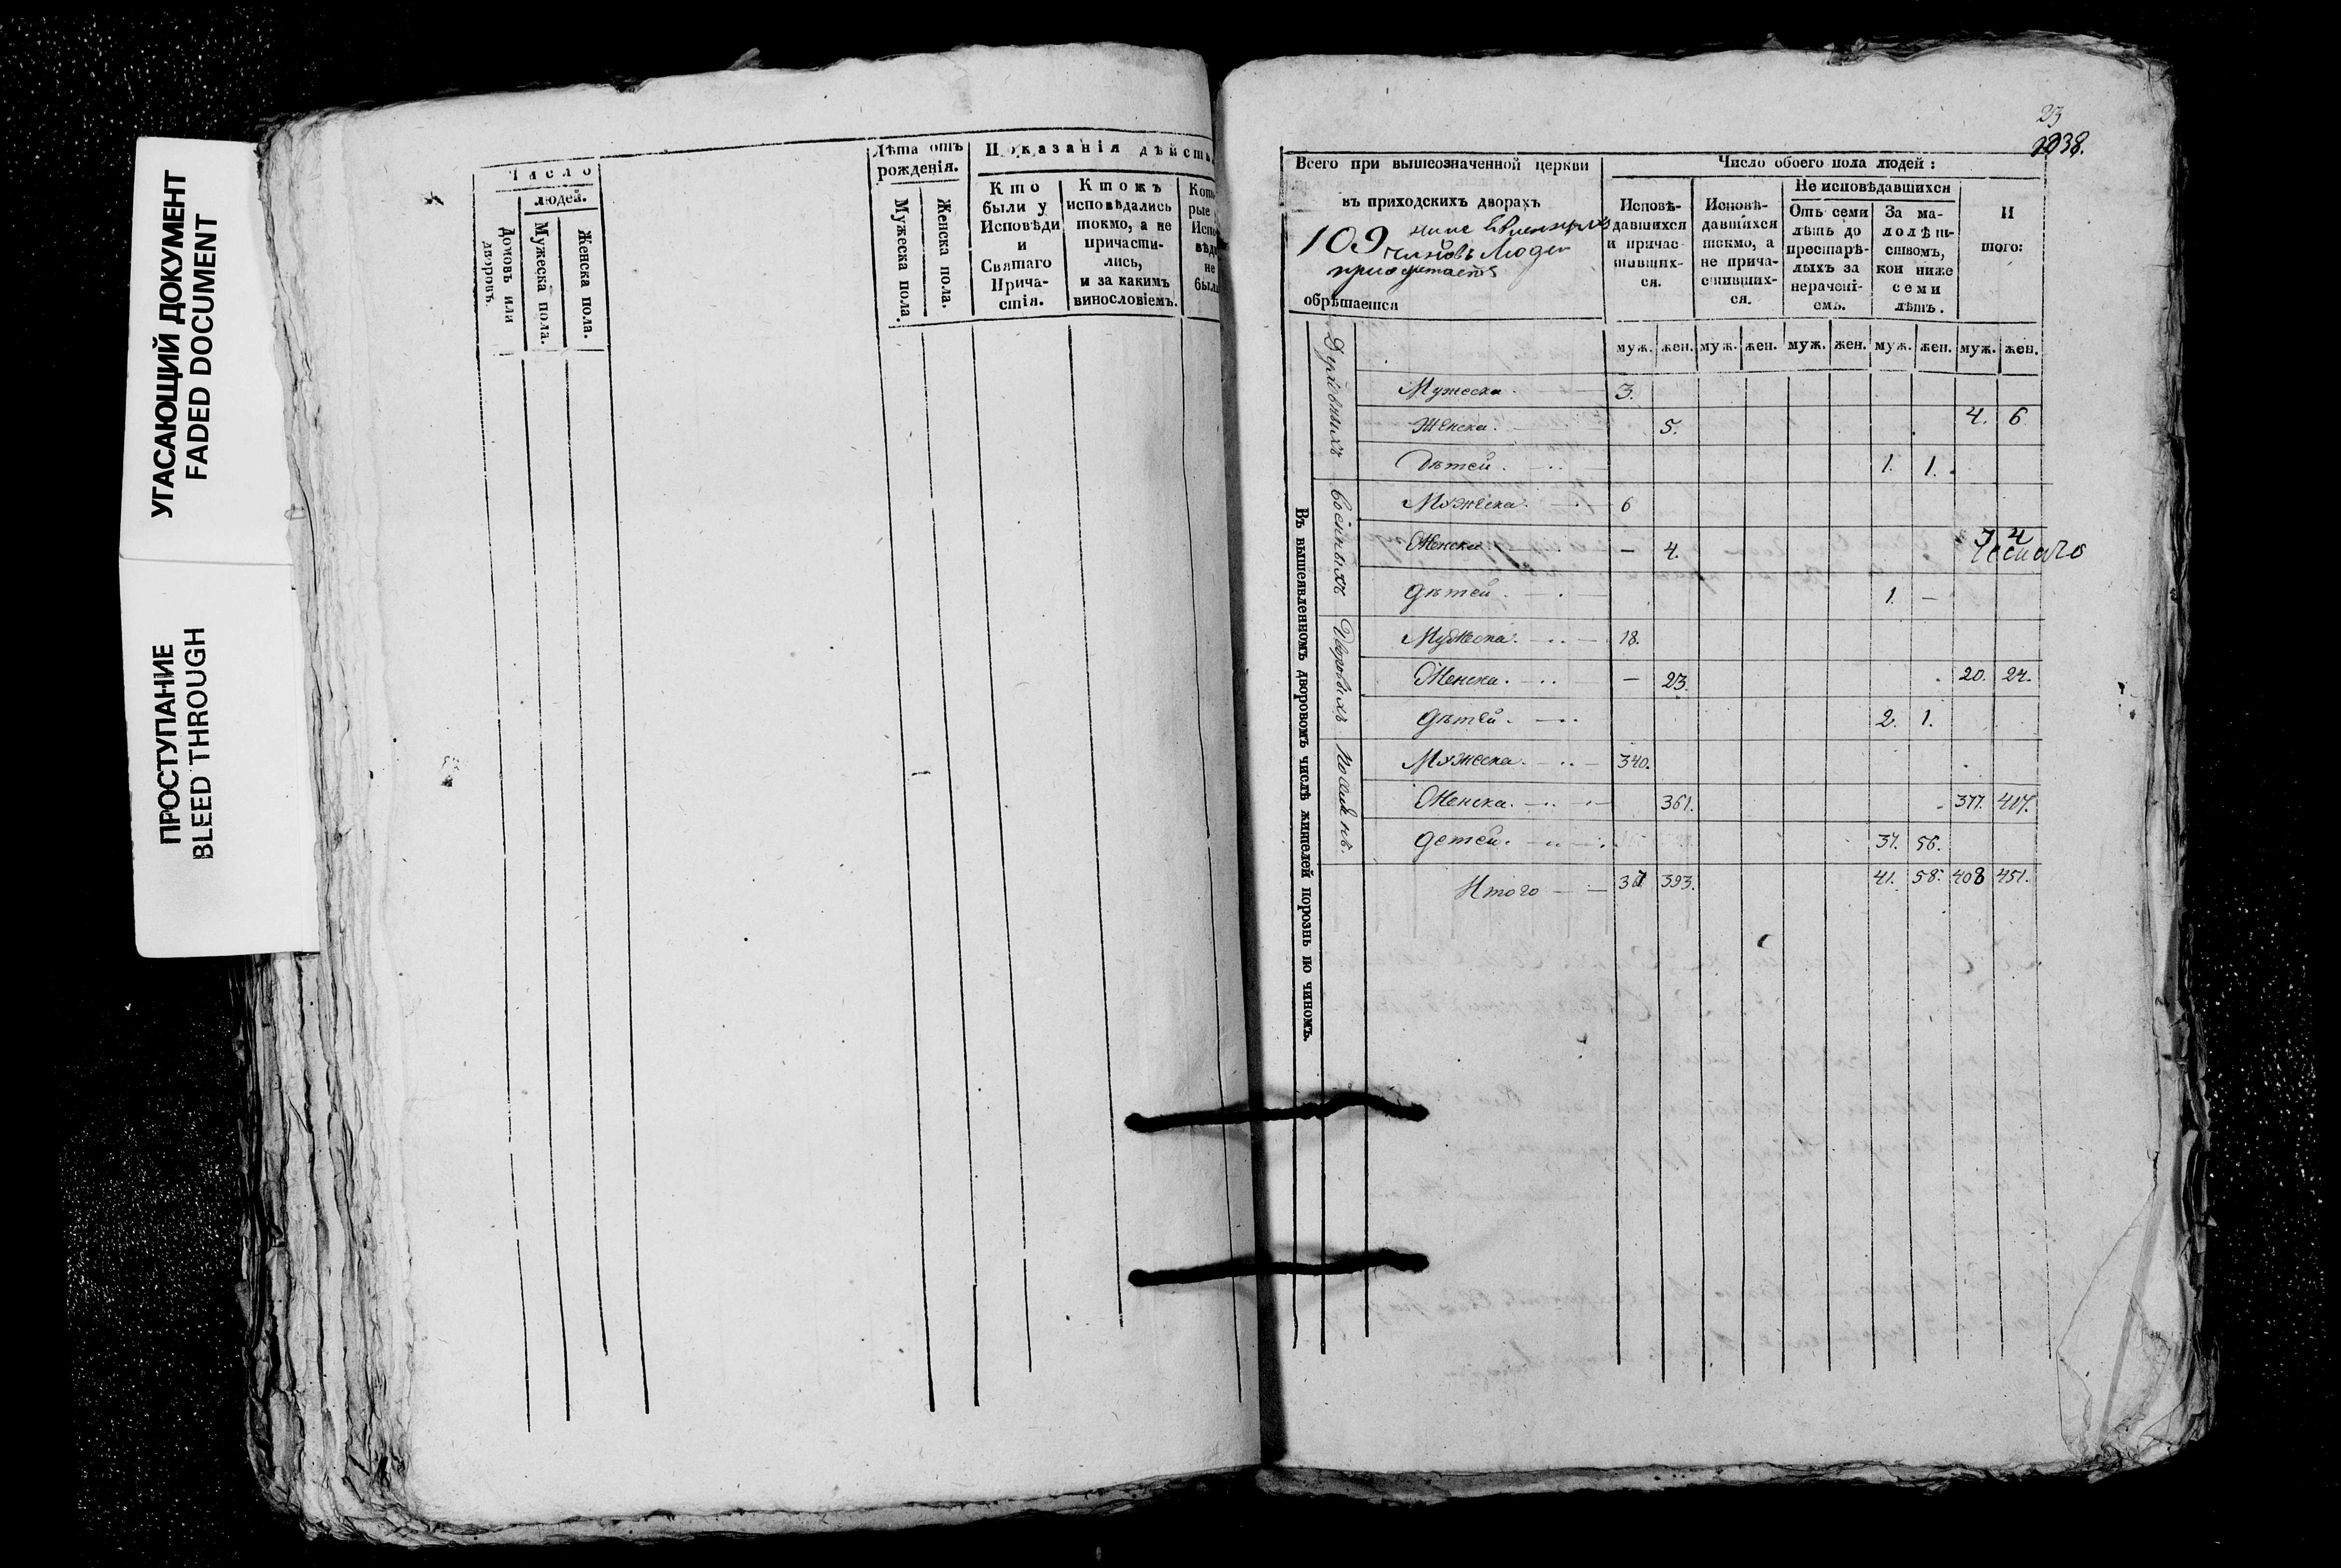 УГАСАЮЩИЙ ДОКУМЕНТ
FADED DOCUMENT
ПРОСТУПАНИЕ
BLEED THROUGH
Число
людей.
Домовъ или дворовъ.
Мужеска пола.
Женска пола.
Лѣта отъ рожденія.
Мужеска пола.
Женска пола.
Показанія дѣйств
Кто были у Исповѣди и Святаго Причастія.
Ктожъ исповѣдались токмо, а не причастились, и за какимъ винословіемъ.
Кото
рые
Испо
вѣд
не
были
23
1038.
Всего при вышеозначенной церкви
въ приходскихъ дворахъ
109
чиновъ людей
обрѣтается
Число обоего пола людей:
Исповѣ-
давшихся
и причас-
тивших-
ся.
Исповѣ-
давшихся
токмо, а
не прича-
стивших-
ся.
Не исповѣдавшихся
Отъ семи
лѣтъ до
престарѣ-
лыхъ за
нерачені-
емъ.
За ма-
лолѣт-
ствомъ,
кои ниже
семи
лѣтъ.
И
того:
муж. жен. муж. жен. муж. жен. муж. жен. муж. жен.
Въ вышеявленномъ дворовомъ числѣ жителей порознь по чиномъ.
Духовныхъ
Мужеска 3.
Женска. 5. 4. 6
Дѣтей. 1. 1.
Военныхъ
Мужеска. 6
Женска — 4. 7 4
дѣтей. 1. —
Дворовыхъ
Мужеска. 18.
Женска. — 23. 20. 24.
дѣтей. 2. 1.
Мужеска. 340.
Женска. 361. 377. 417.
детей. 37. 56.
Итого 367 393. 41. 58. 408 451.